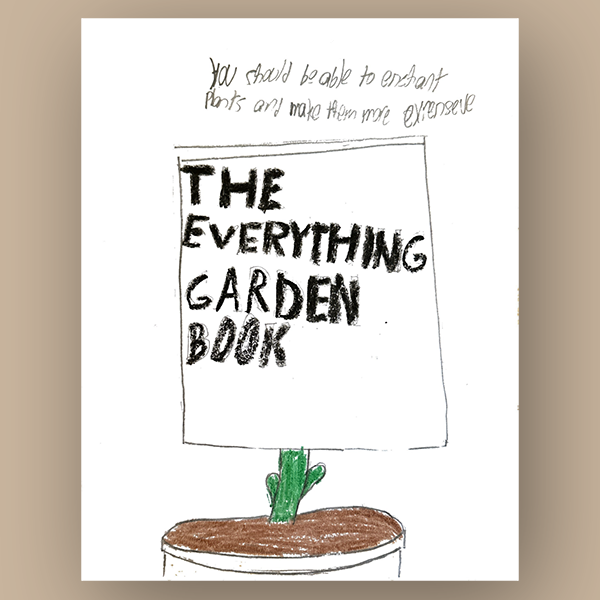 You should be able to enchant
Plants and make them more exrenseve
THE
EVERYTHING
GARDEN
BOOK